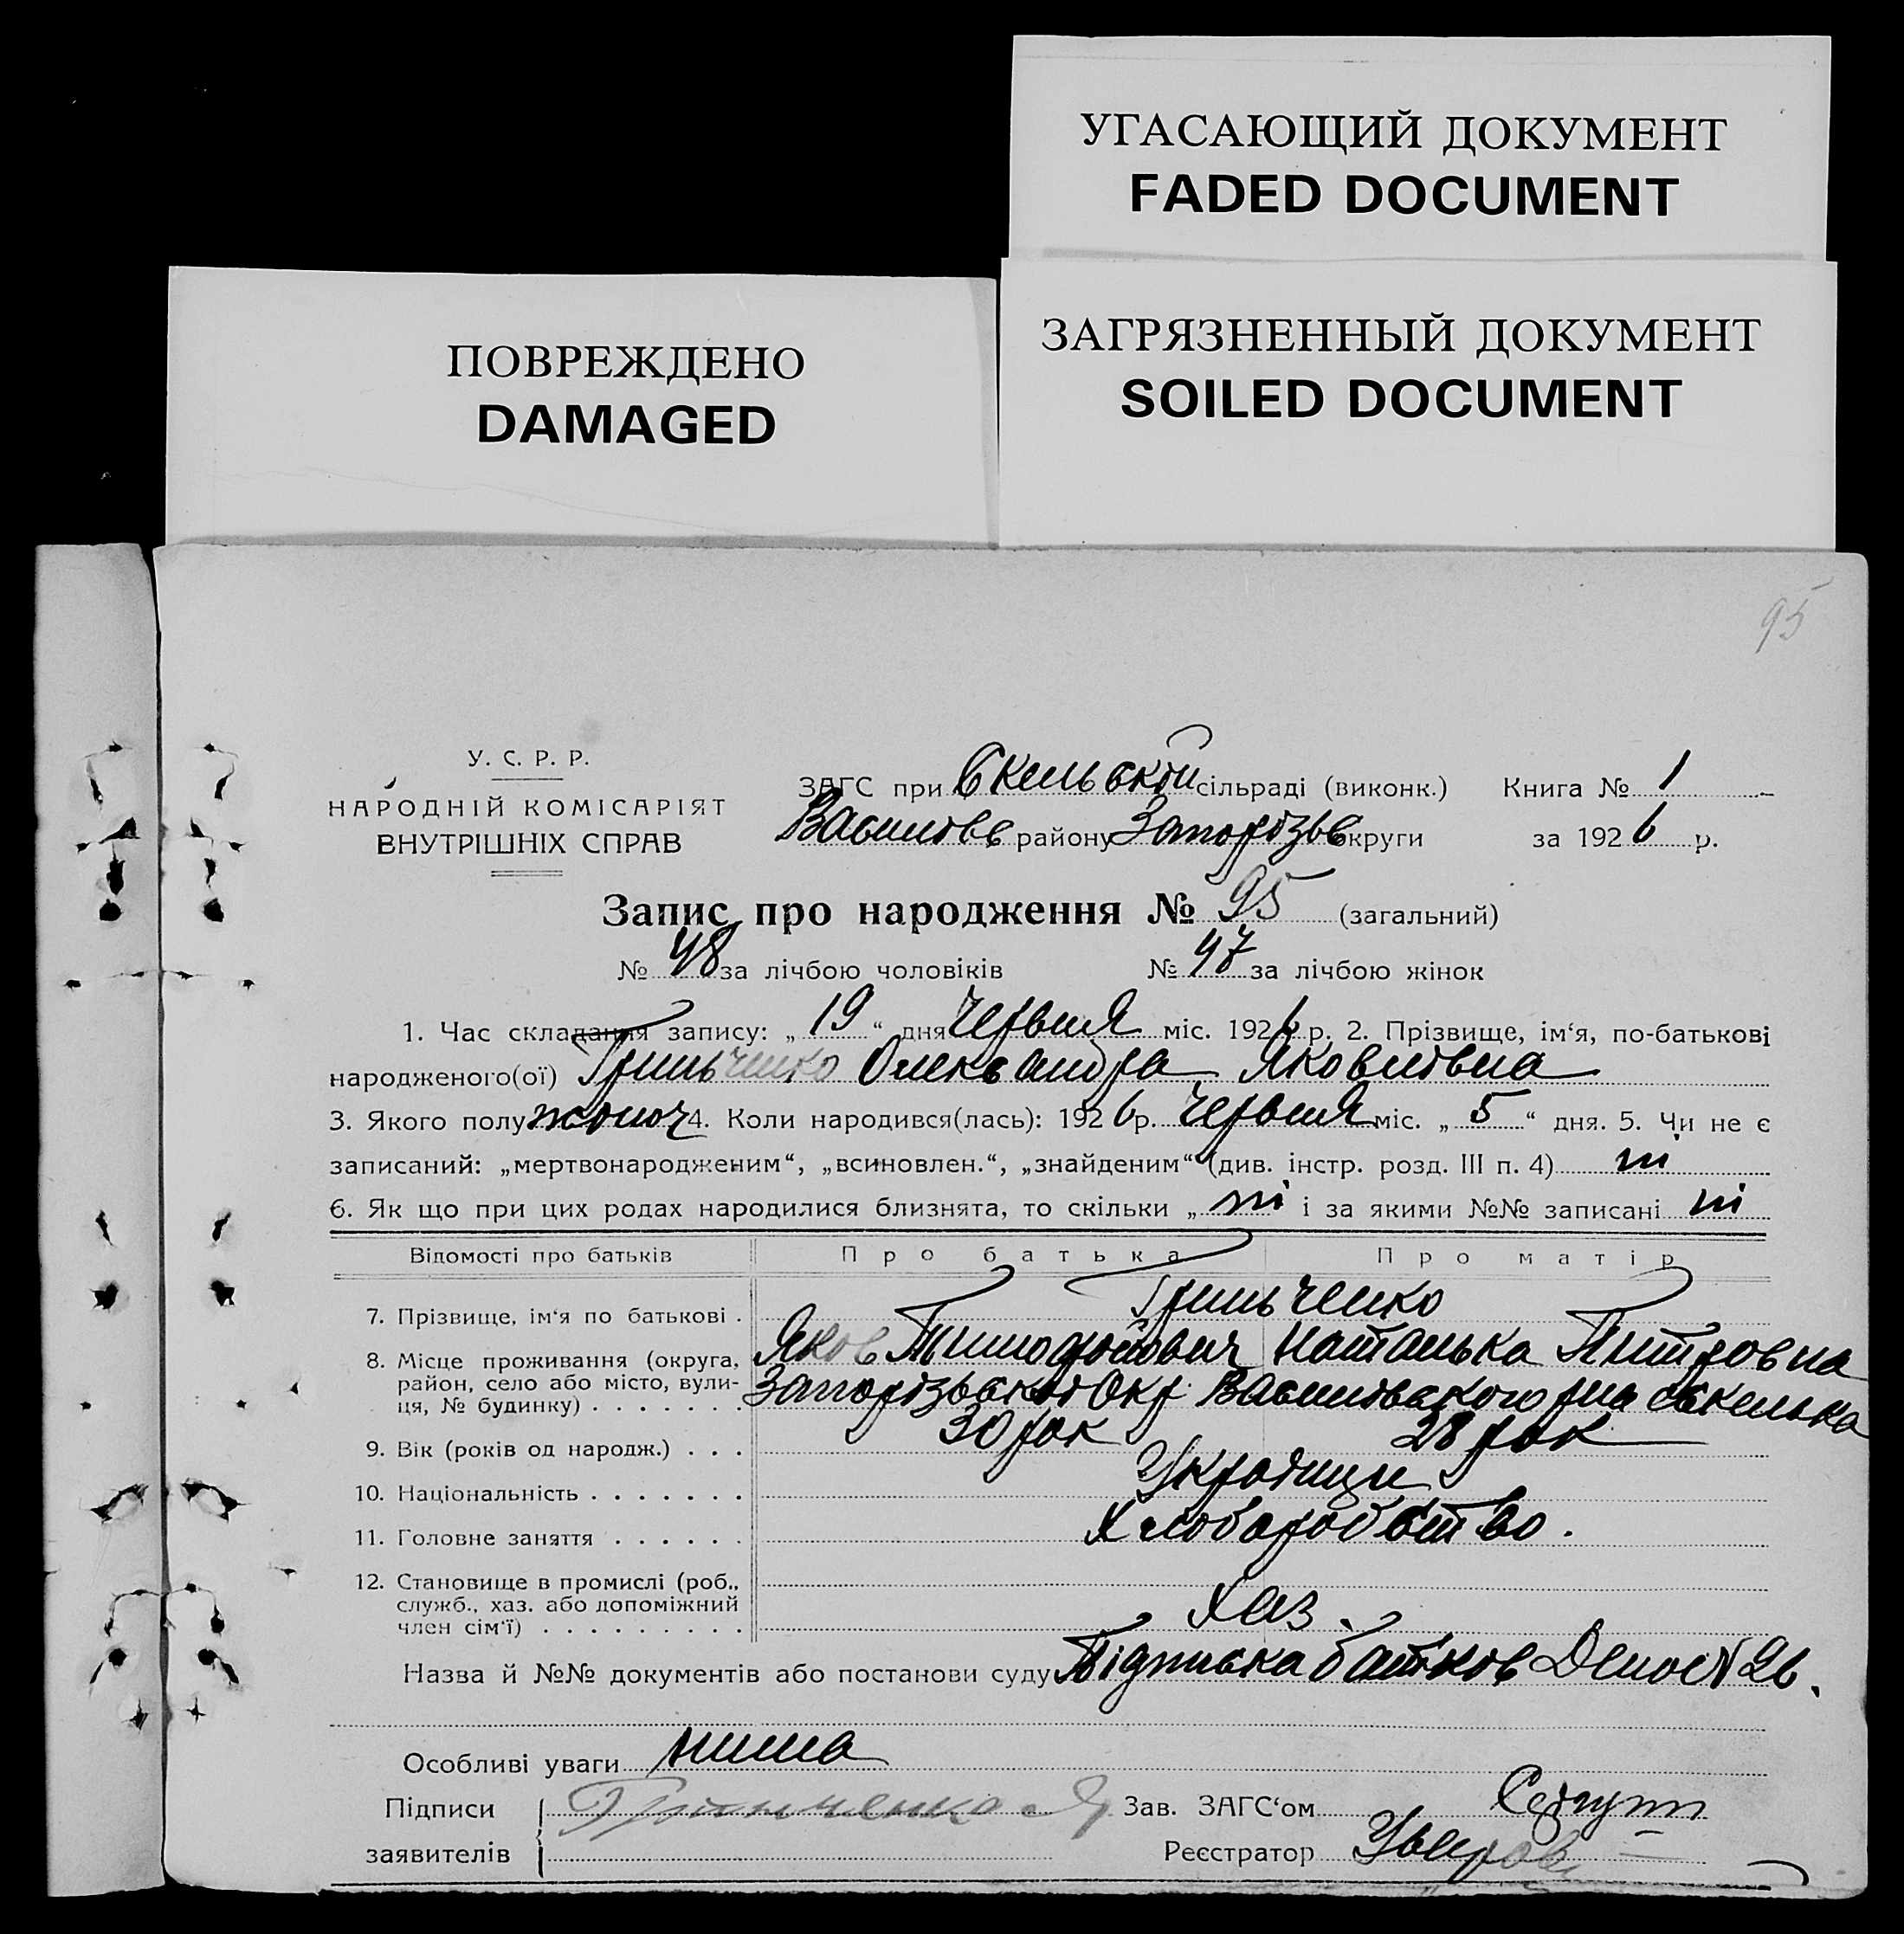 УГАСАЮЩИЙ ДОКУМЕНТ
FADED DOCUMENT
ЗАГРЯЗНЕННЫЙ ДОКУМЕНТ
SOILED DOCUMENT
ПОВРЕЖДЕНО
DAMAGED
95
У. С. Р. Р.
НАРОДНІЙ КОМІСАРІЯТ
ВНУТРІШНІХ СПРАВ
ЗАГС при Скельській сільраді (виконк.) Книга № 1
Василівс району Запорізьк округи за 1926 р.
Запис про народження № 95 (загальний)
№ 48 за лічбою чоловіків № 47 за лічбою жінок
1. Час складання запису: „ 19 “ дня червня міс. 1926 р. 2. Прізвище, ім‘я, по-батькові
народженого(ої) Гриньченко Олександра Яковлівна
3. Якого полу жіноч 4. Коли народився(лась): 1926 р. червня міс. „ 5 “ дня. 5. Чи не є
записаний: „мертвонародженим“, „всиновлен.“, „знайденим“ (див. інстр. розд. III п. 4) ні
6. Як що при цих родах народилися близнята, то скільки „ ні і за якими №№ записані ні
Відомості про батьків Про батька Про матір
7. Прізвище, ім‘я по батькові . Гриньченко
Яков Тимофійович Наталька Питровна
8. Місце проживання (округа,
район, село або місто, вули-
ця, № будинку) . . . . . . . Запорізької Окр. Василівского рна с Скелька
9. Вік (років од народж.) . . . 30 рок 28 рок
10. Національність . . . . . . . Українци
11. Головне заняття . . . . . . Хліборобство.
12. Становище в промислі (роб.,
служб., хаз. або допоміжний
член сім‘ї) . . . . . . . . . Хаз.
Назва й №№ документів або постановки суду Підписка батков N 26.
Особливі уваги нима
Підписи Гринченко Я Зав. ЗАГС‘ом
заявителів Реєстратор